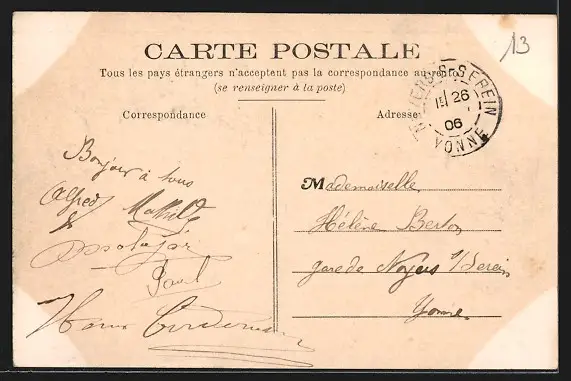 13
CARTE POSTALE
Tous les pays étrangers n'acceptent pas la correspondance au verso
(se renseigner à la poste)
Correspondance
Bonjour à tous
Alfred Mathilde
&
Paul
Adresse
SEREIN
26
06
YONNE
Mademoiselle
Hélène Berton
gare de Noyers s/Serein
Yonne